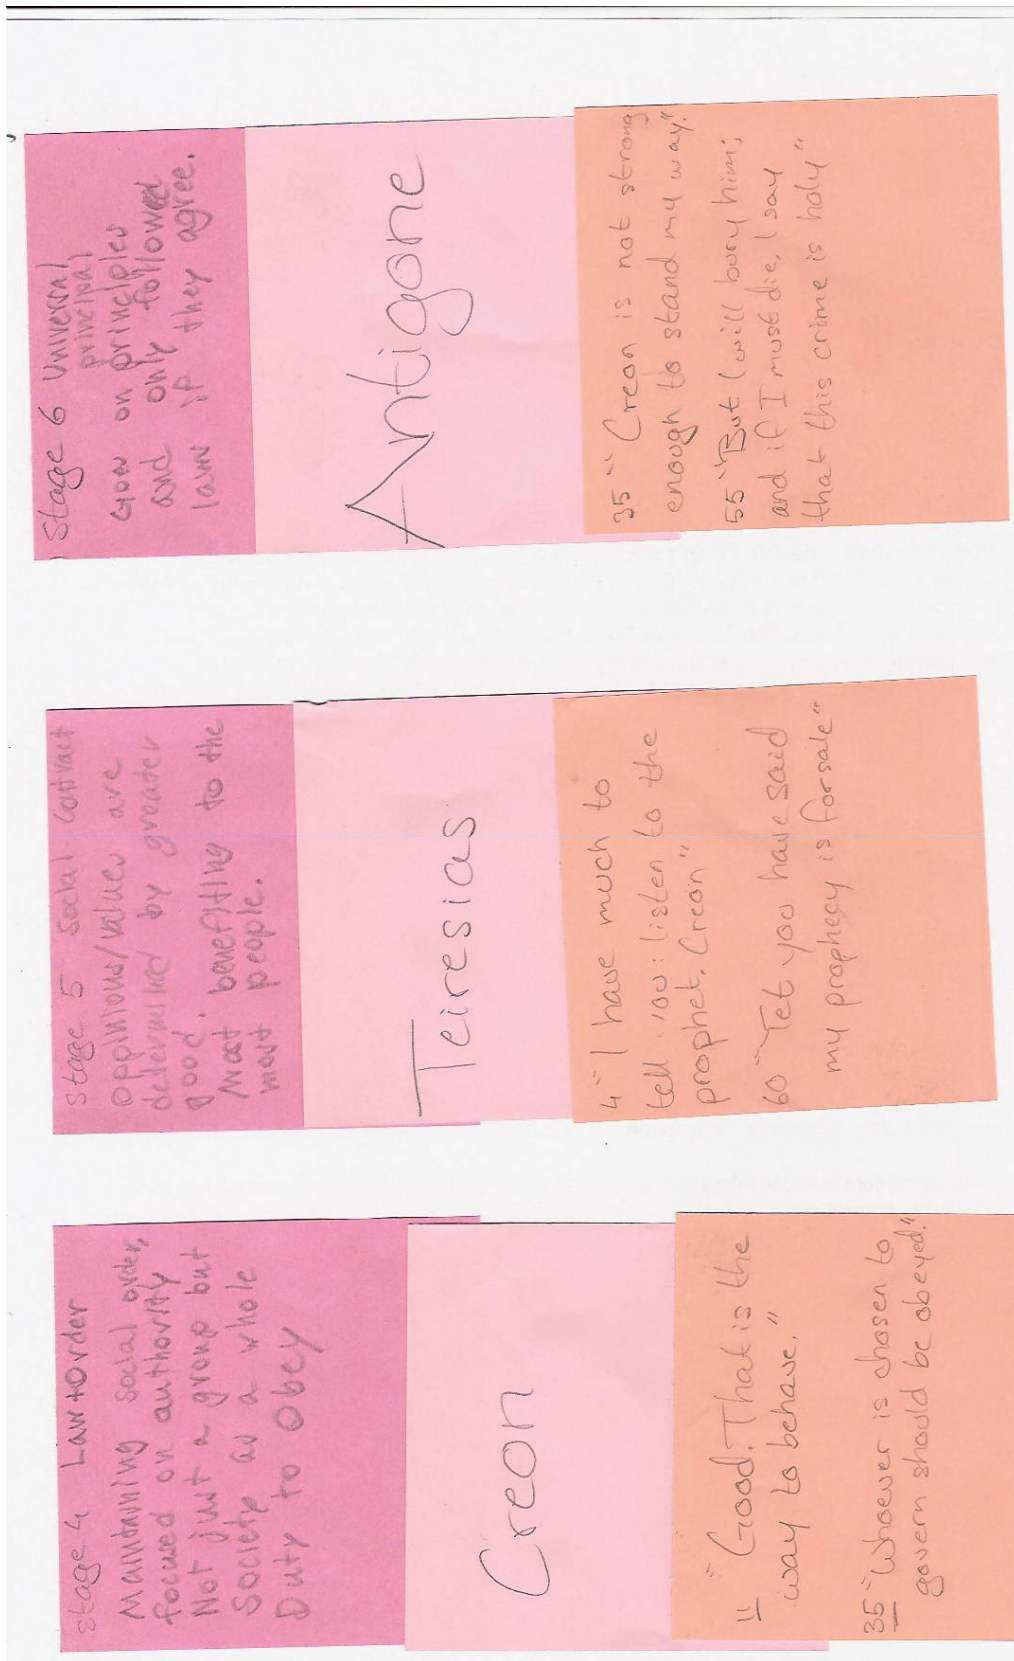 Stage 4 Law+Order
Maintaining social order,
focused on authority
Not just a group but
Society as a whole
Duty to Obey
Creon
11 " Good. That is the
way to behave."
35 " Whoever is chosen to
govern should be obeyed."
Stage 5 Social Contract
Oppinions/values are
determined by greater
good.
Most benefitting to the
most people.
Teiresias
4 " I have much to
tell you: listen to the
prophet, Creon"
60 " Yet you have said
my prophecy is forsale"
Stage 6 Universal
principal
on principles
and only followed
laws if they agree.
Antigone
35 " Creon is not strong
enough to stand my way."
55 " But I will bury him;
and if I must die, I say
that this crime is holy"